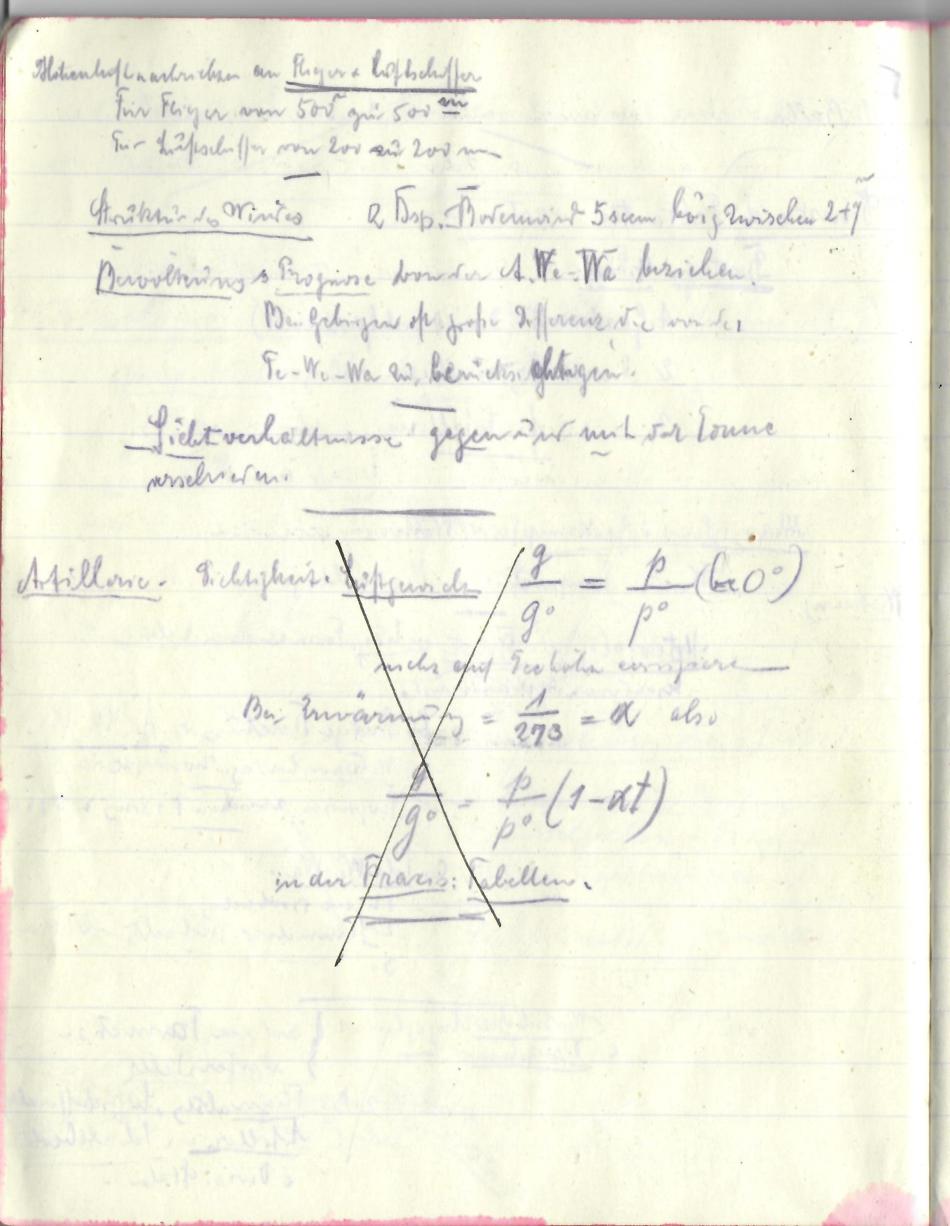 an Flieger & Luftschiffer
Für Flieger von 500 zu 500 m
Für Luftschiffer von 200 zu 200 m
Struktur des Windes z Bsp. Bodenwind 5 scm böig zwischen 2+7
Bewölkung & Prognose von der A. We-Wa beziehen.
Bei Gebirgen oft große Differenz, die von der
Fe-We-Wa zu berücksichtigen.
Sichtverhältnisse gegen und mit der Sonne
verschieden.
Artillerie. Sichtigkeit. Luftgewicht g/g° = p/p° (bei 0°)
nicht auf Seehöhe
Bei Erwärmung = 1/273 = α also
g/g° = p/p° (1-αt)
in der Praxis: Tabellen.